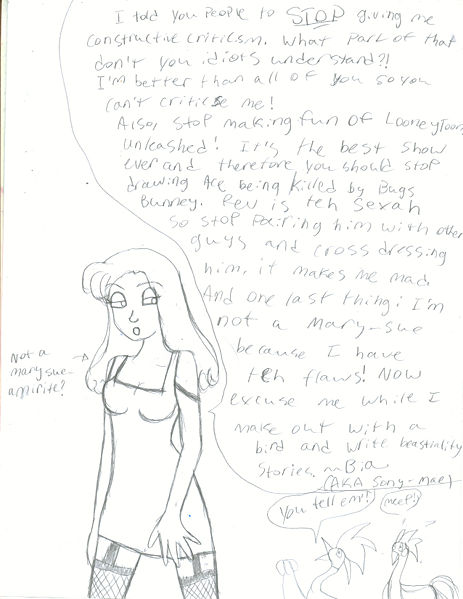 I told you people to STOP giving me
constructive criticism. What part of that
don't you idiots understand?!
I'm better than all of you so you
can't criticise me!
Also, stop making fun of Looney Toons
Unleashed! It's the best show
ever and therefore you should stop
drawing Are being killed by Bugs
Bunney. Rev is teh Sexah
so stop pairing him with other
guys and cross dressing
him, it makes me mad.
And one last thing: I'm
not a Mary-sue
because I have
teh flaws! Now
excuse me while I
make out with a
bird and write beastiality
stories. ~Bia
(AKA Sony-mae)
Not a
mary sue
amirite?
You tell em!!
meep!